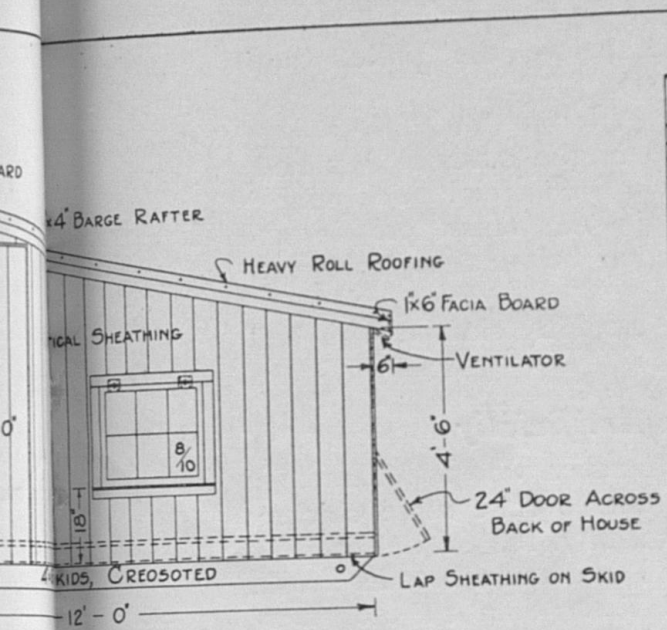 ARD
x4" BARGE RAFTER
HEAVY ROLL ROOFING
1"x6" FACIA BOARD
TICAL SHEATHING
VENTILATOR
6"
0"
8/10
4'-6"
18"
24" DOOR ACROSS
BACK OF HOUSE
KIDS, CREOSOTED
LAP SHEATHING ON SKID
12'-0"